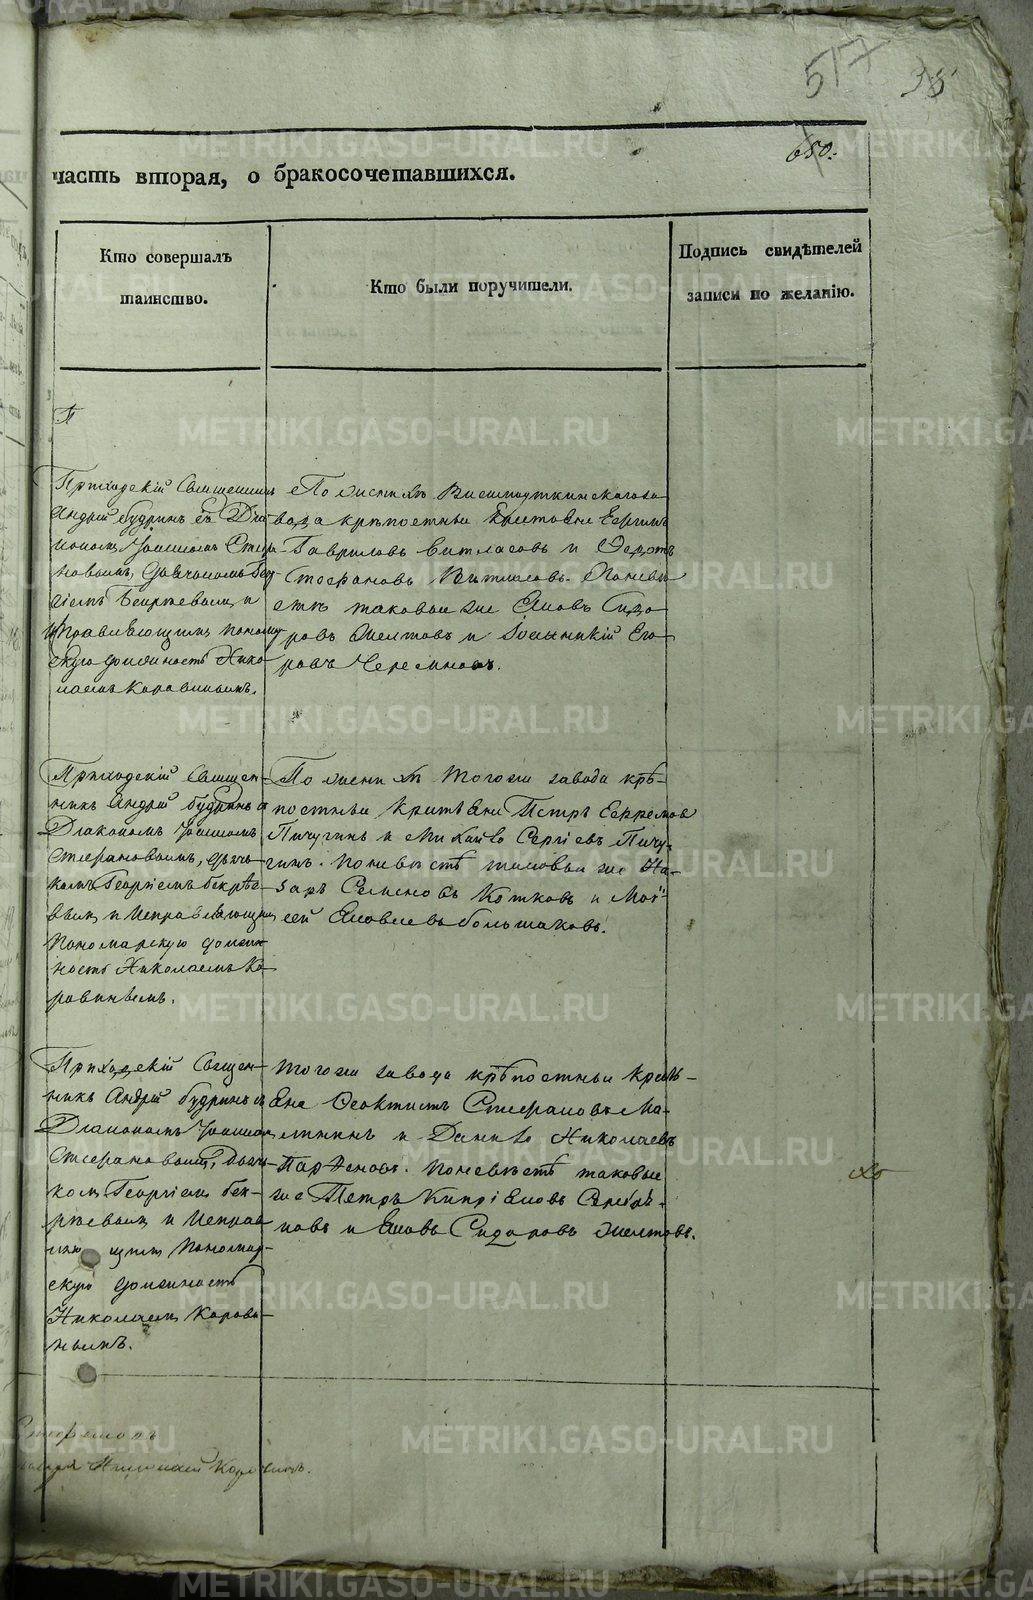 517 38
680.
часть вторая, о бракосочетавшихся.
Кто совершалъ
таинство.
Кто были поручители.
Подпись свидѣтелей
записи по желанію.
П
Приходскій Священникъ
Андрей Будринъ съ Діа
кономъ Іоанномъ Стефа
новымъ, Дьячкомъ Геор
гіемъ и
Исправляющимъ понома
рскую должность Нико
лаемъ Коровинымъ.
По женихѣ Висимоуткинскаго за
вода крѣпостныи крестьяне
Гавриловъ и Ѳедотъ
Стефановъ По невѣ
стѣ таковыи же Яковъ Сидо
ровъ Желтовъ и Іоанникій Его
ровъ Черемновъ.
Приходскій Священ-
никъ Андрей Будринъ съ
Діакономъ Іоанномъ
Стефановымъ, дьяч-
комъ Георгіемъ
и Исправляющимъ
Пономарскую должн-
ность Николаемъ Ко
ровинымъ.
По женихѣ тогоже завода крѣ-
постныи крестьяне Петръ Ефремовъ
Пичугинъ и Михайло Сергіевъ Пичу-
гинъ. по невѣстѣ таковыи же На-
заръ Семеновъ Котковъ и Мои-
сей Яковлевъ Большаковъ.
Приходскій Священ-
никъ Андрей Будринъ съ
Діакономъ Іоанномъ
Стефановымъ, Дьяч-
комъ Георгіемъ
и Исправля
ющимъ Пономар-
скую должность
Николаемъ Корови-
нымъ.
тогоже завода крѣпостныи кресть-
яне Ѳеоктистъ Стефановъ Ма-
и Данило Николаевъ
Парѳеновъ. по невѣстѣ таковыи
же Петръ Кипріяновъ Серебря-
ковъ и Яковъ Сидоровъ Желтовъ.
Николай Коровинъ.
METRIKI.GASO-URAL.RU